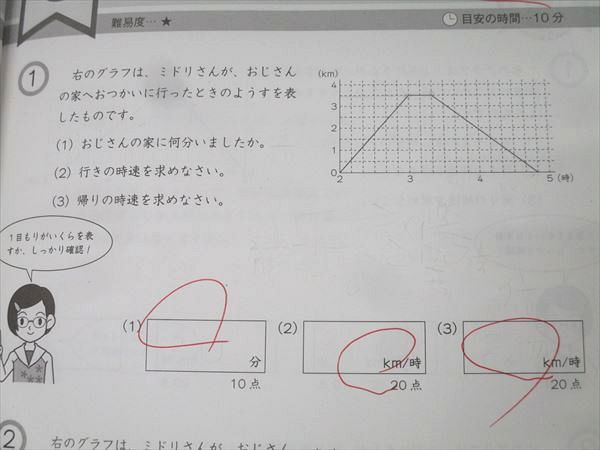 難易度…★
目安の時間…10分
1
右のグラフは、ミドリさんが、おじさん
の家へおつかいに行ったときのようすを表
したものです。
(1) おじさんの家に何分いましたか。
(2) 行きの時速を求めなさい。
(3) 帰りの時速を求めなさい。
(km)
4
3
2
1
0
2
3
4
5 (時)
1目もりがいくらを表
すか、しっかり確認！
(1)
分
10点
(2)
km/時
20点
(3)
km/時
20点
2
右のグラフは、ミドリさんが、おじさん